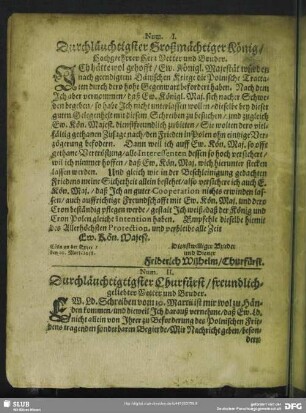 Num. I.
Durchläuchtigster Großmächtiger König/
Hochgeehrter Herr Vetter und Bruder.
ICh hätte wol gehofft / Ew. Königl. Majestät würden
nach geendigtem Dänischen Kriege die Polnische Tracta-
ten durch dero hohe Gegenwart befodert haben. Nach dem
Ich aber vernommen / daß Ew. Königl. Maj. sich nacher Schwe-
den begeben / so habe Ich nicht unterlassen wollen / dieselbe bey dieser
guten Gelegenheit mit diesen Schreiben zu besuchen / und zugleich
Ew. Kön. Majest. dienstfreundlich zu bitten / Sie wolten dero viel-
fältig gethanen Zusage nach / den Frieden in Polen ohn einige Ver-
zögerung befodern. Dann weil ich auff Ew. Kön. Maj. so offt
gethane Vertröstung / alle Interessenten dessen so hoch versichert /
wil ich nimmer hoffen / daß Ew. Kön. Maj. mich hierunter stecken
lassen werden. Und gleich wie in der Beschleinigung gedachten
Friedens meine Sicherheit allein bestehet / also versichere ich auch E.
Kön. Maj. / daß Ich an guter Cooperation nichts erwinden lassen /
auch auffrichtige Freundschafft mit Ew. Kön. Maj. und dero
Cron beständig pflegen werde / gestalt Ich weiß / daß der König und
Cron Polen gleiche Intention haben. Empfehle dieselbe hiemit
des Allerhöchsten Protection, und verbleibe alle Zeit
Ew. Kön. Majest.
Cöln an der Spree /
Dienstwilliger Bruder
und Diener
Friderich Wilhelm / Churfürst.
Num. II.
Durchläuchtigtigster Churfürst / freundlich-
geliebter Vetter und Bruder.
EW. Ld. Schreiben vom 10. Martii ist mir wol zu Hän-
den kommen / und dieweil Ich darauß vernehme / daß Ew. Ld.
nicht allein von Jhrer zu Beforderung des Polnischen Frie-
dens tragenden sonderbaren Begierde / Mir Nachricht geben / beson-
dern